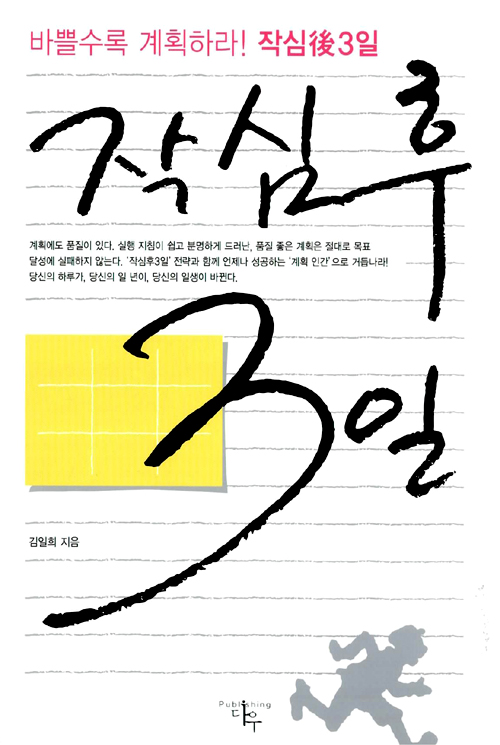 바쁠수록 계획하라! 작심後3일
작심후
3일
계획에도 품질이 있다. 실행 지침이 쉽고 분명하게 드러난, 품질 좋은 계획은 절대로 목표
달성에 실패하지 않는다. '작심후3일' 전략과 함께 언제나 성공하는 '계획 인간'으로 거듭나라!
당신의 하루가, 당신의 일 년이, 당신의 일생이 바뀐다.
김일희 지음
Publishing
다우